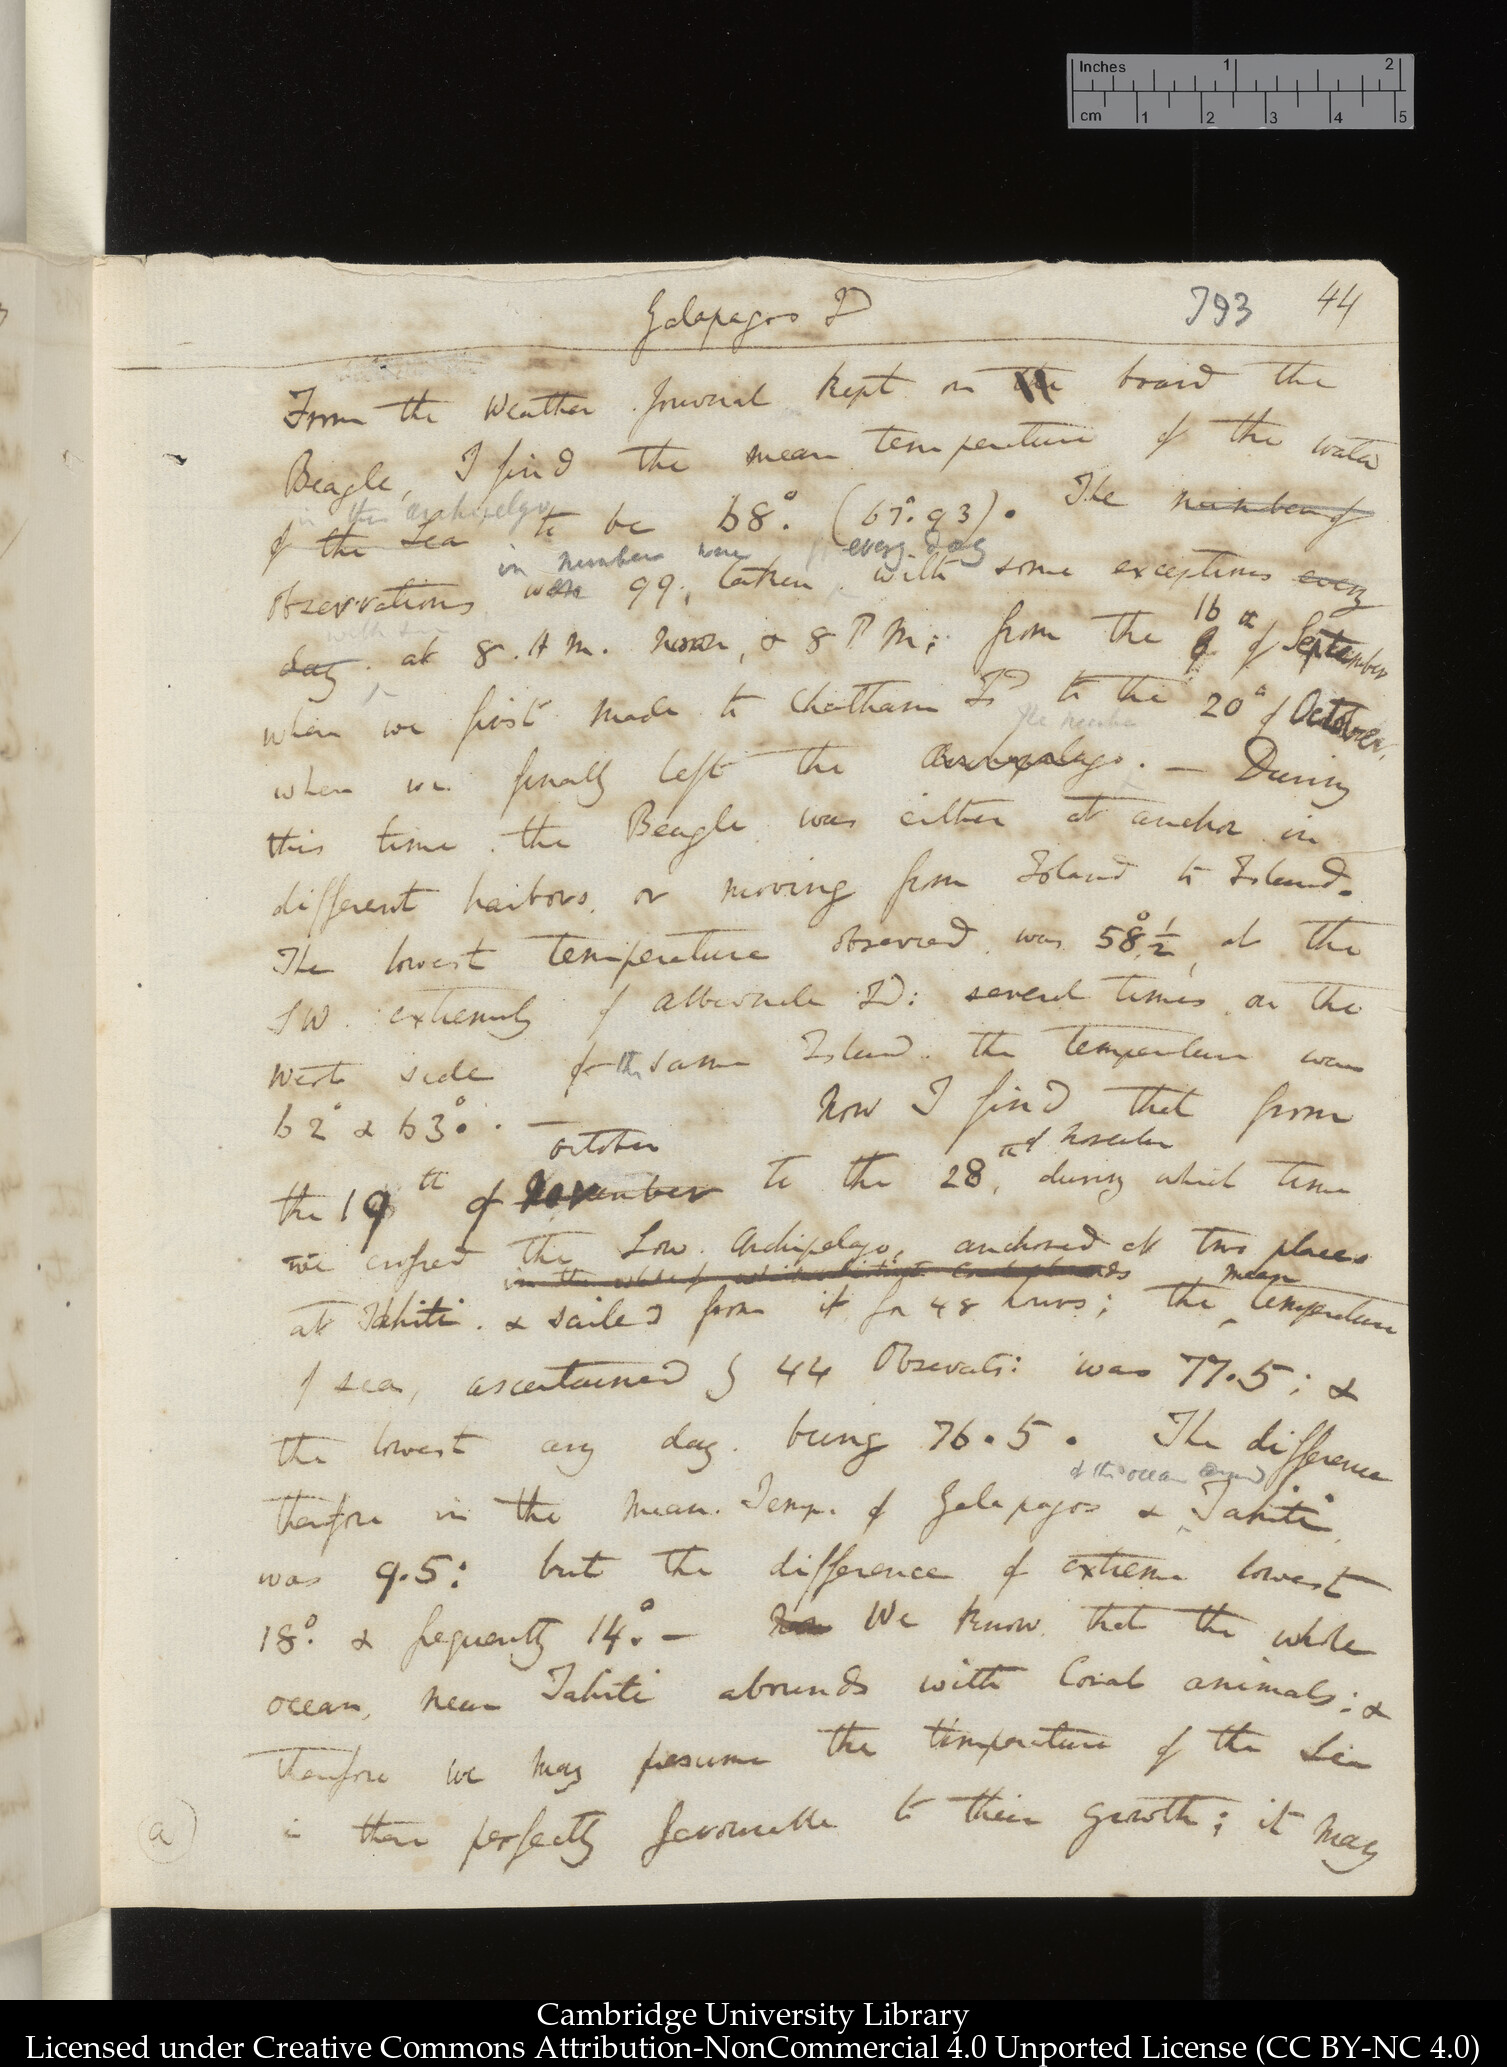 Inches 1 2
cm 1 2 3 4 5
Galapagos Id 793 44
From the Weather Journal kept on the board the
Beagle, I find the mean temperature of the water
in this archipelago
of the Sea to be 68°. (67°.93). The number of
in number were every day
observations were 99, taken with some exceptions every
day, at 8. A M. noon, & 8 P M; from the 16th 9 of September
when we first made to Chatham Id to the 20th of October,
when we finally left the Archipelago. — During
this time the Beagle was either at anchor in
different harbors, or moving from Island to Island.
The lowest temperature observed was 58°½, at the
SW. extremity of Albemarle Id: several times on the
West side of the same Island the temperature was
62° & 63°. — Now I find that from
October of November
the 19th of November to the 28th, during which time
we crossed the Low Archipelago, anchored at two places
mean
at Tahiti. & sailed from it for 48 hours; the temperature
of sea, ascertained by 44 Observats: was 77.5; &
the lowest any day being 76.5. The difference
of the ocean around
therefore in the Mean. Temp. of Galapagos & Tahiti,
was 9.5: but the difference of extreme lowest
18°. & frequently 14°. — Now We know that the whole
ocean, near Tahiti abounds with Coral animals; &
therefore we may presume the temperature of the Sea
(a) is there perfectly favourable to their growth; it may
Cambridge University Library
Licensed under Creative Commons Attribution-NonCommercial 4.0 Unported License (CC BY-NC 4.0)